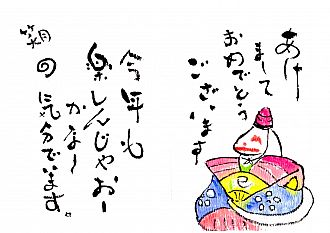 あけ
まして
おめでとう
ございます
今年も
楽しんじゃおー
かな〜
の気分でいます。
巳